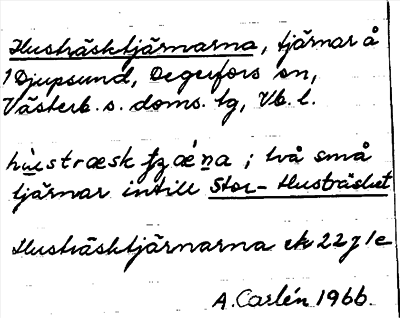 Husträsktjärnarna, tjärnar å
1 Djupsund, Degerfors sn,
Västerb. s. doms. tg, Vb. l.
hùstræsk tjzǽṇa ; två små
tjärnar intill Stor-Husträsket
Husträsktjärnarna ek 22 J 1 e
A. Carlén 1966.